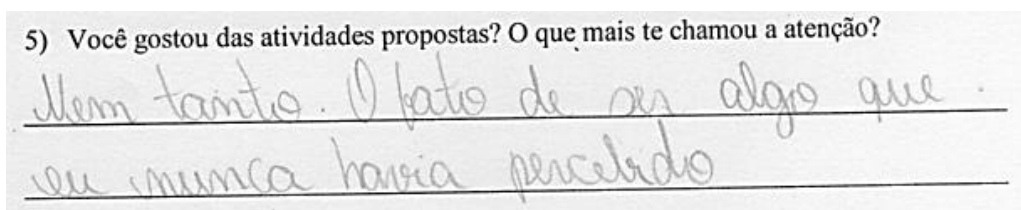 5) Você gostou das atividades propostas? O que mais te chamou a atenção?
Nem tanto. O fato de ser algo que
eu nunca havia percebido